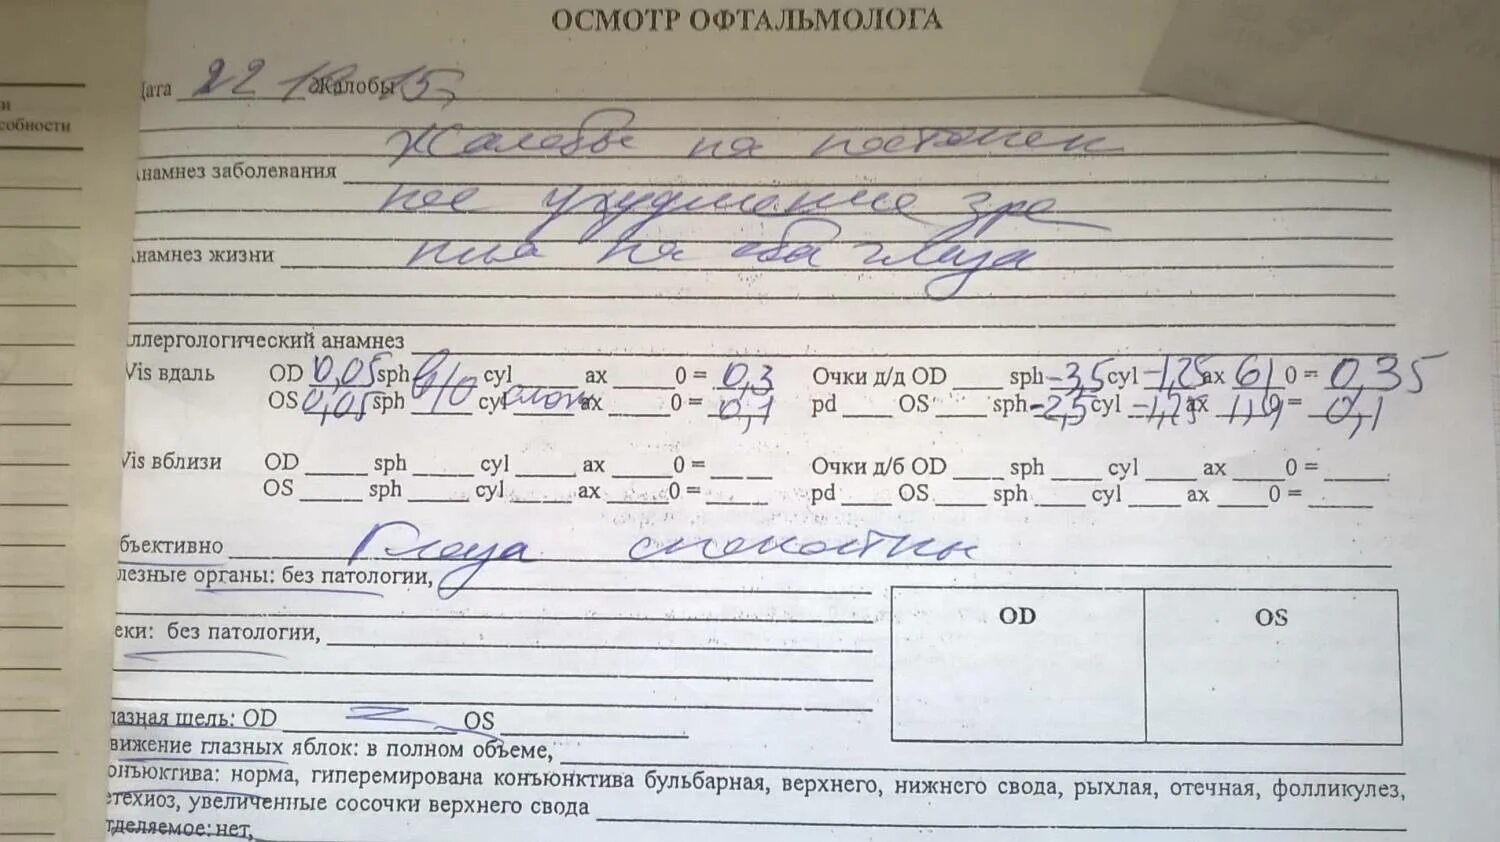 ОСМОТР ОФТАЛЬМОЛОГА
и
собности
Дата 22 Жалобы 15
Жалобы на постепен
Анамнез заболевания
ное ухудшение зре
Анамнез жизни ния на оба глаза
Аллергологический анамнез
Vis вдаль OD 0,05 sph б/о cyl ах 0 = 0,3 Очки д/д OD sph -3,5 cyl -1,25 ах 61 0 = 0,35
OS 0,05 sph б/о cyl ах 0 = 0,1 pd OS sph -2,5 cyl -1,25 ах 0 = 0,1
Vis вблизи OD sph cyl ах 0 = Очки д/б OD sph cyl ах 0 =
OS sph cyl ах 0 = pd OS sph cyl ах 0 =
бъективно Глаза спокойны
лезные органы: без патологии,
OD OS
еки: без патологии,
лазная щель: OD = OS
вижение глазных яблок: в полном объеме,
онъюктива: норма, гиперемирована конъюнктива бульбарная, верхнего, нижнего свода, рыхлая, отечная, фолликулез,
етехиоз, увеличенные сосочки верхнего свода
тделяемое: нет,